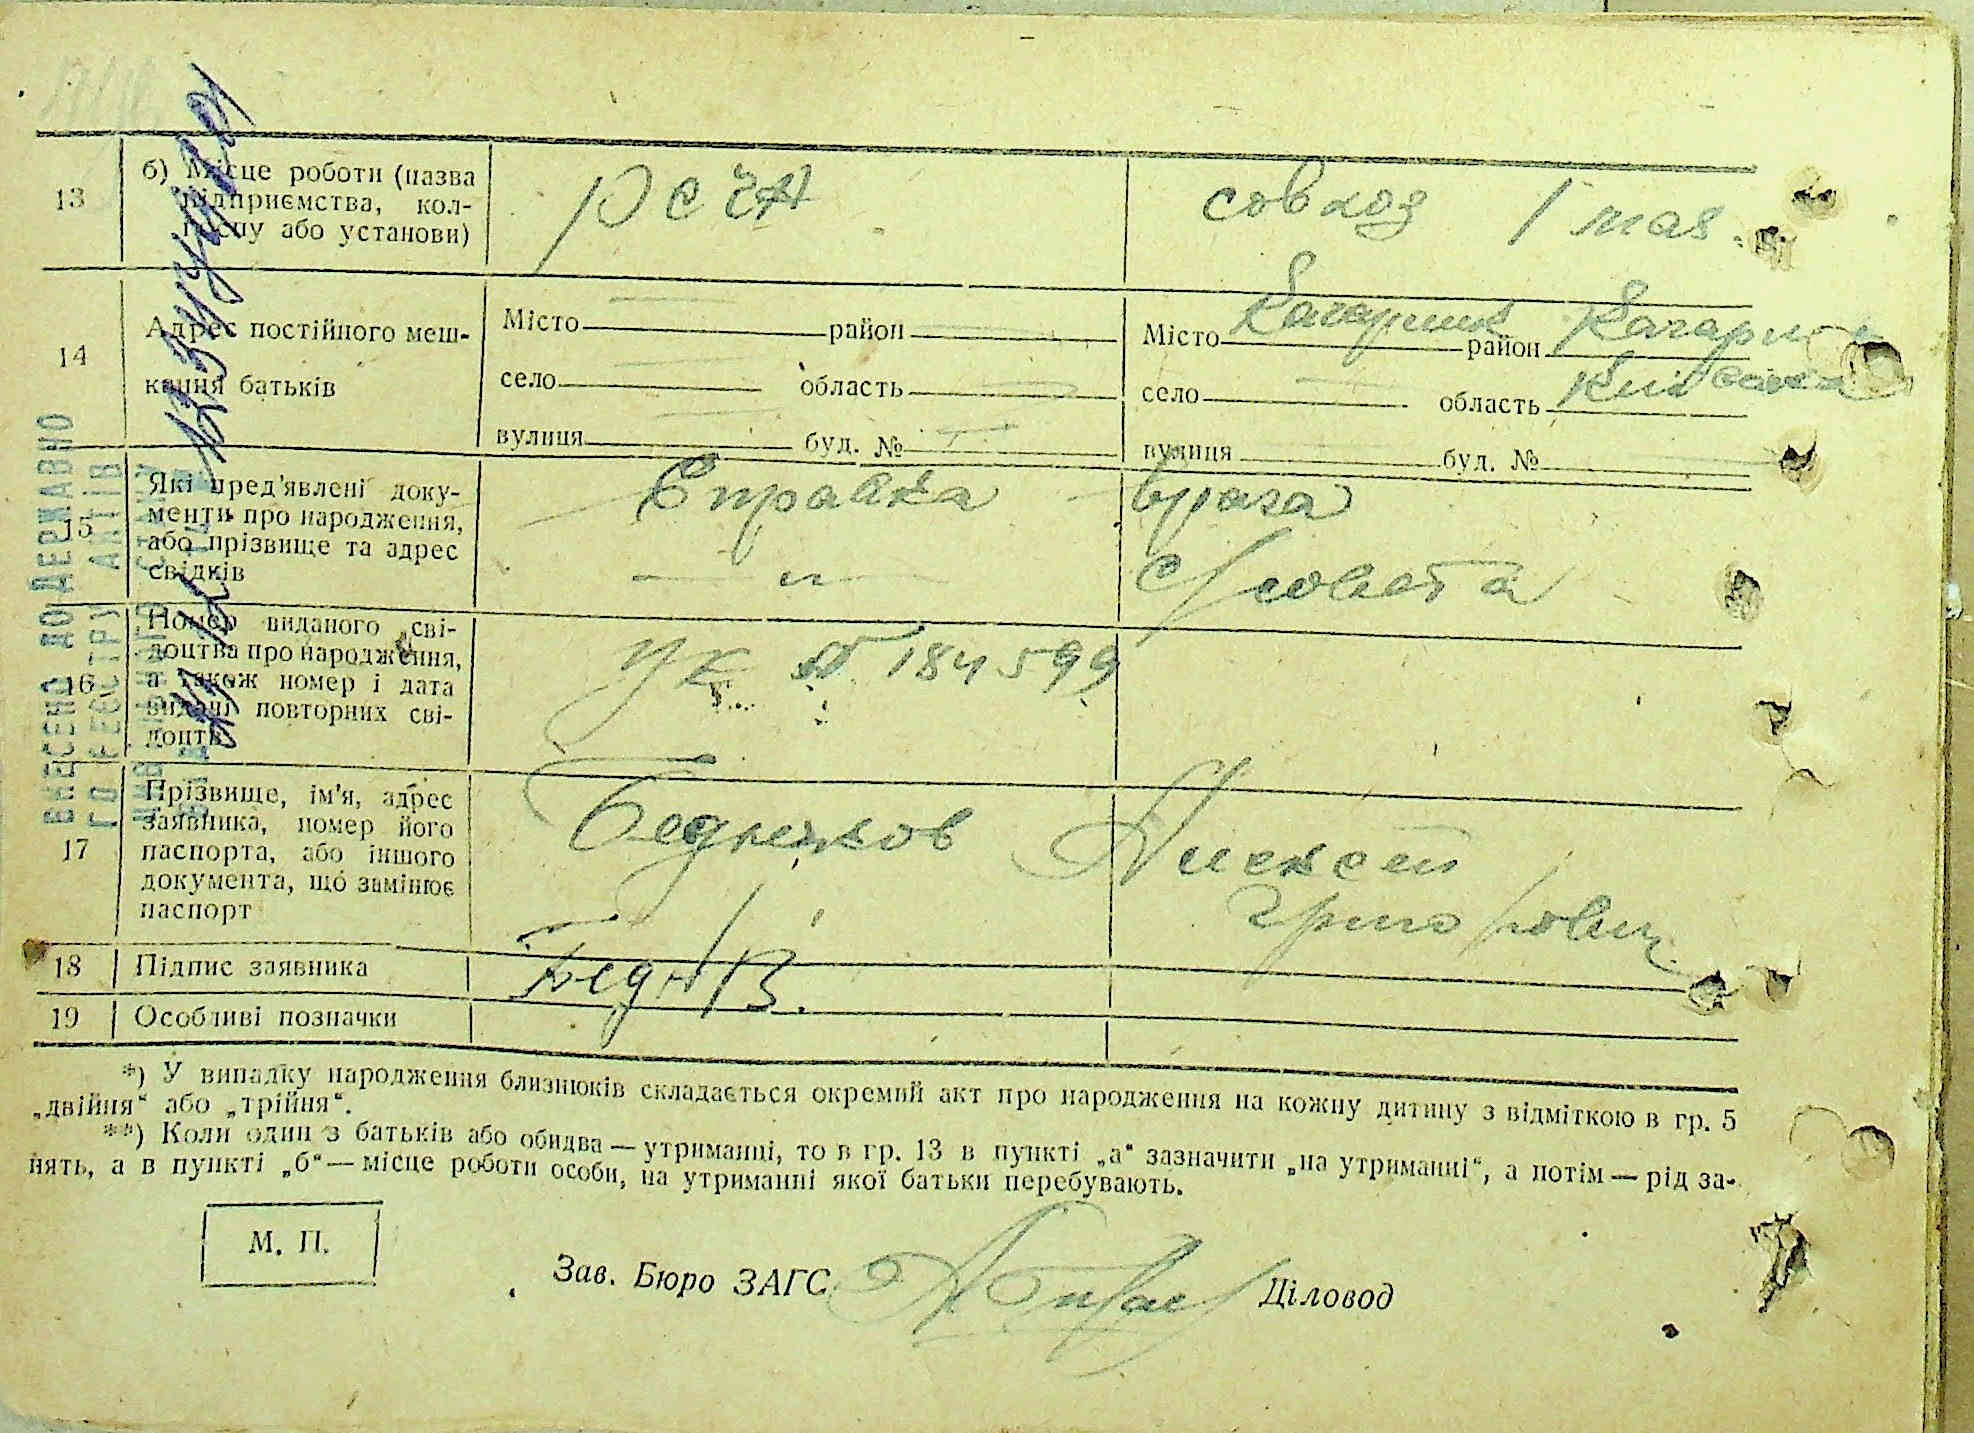 13
б) Місце роботи (назва
підприємства, кол-
госпу або установи)
совхоз 1 мая.
14
Адрес постійного меш-
кання батьків
Місто район
село область
вулиця буд. №
Місто Кагарлик район Кагарл
село область Київська
вулиця буд. №
15
Які пред'явлені доку-
менти про народження,
або прізвище та адрес
свідків
Справка врача
— „ — с/совета
16
Номер виданого сві-
доцтва про народження,
а також номер і дата
видачі повторних сві-
доцтв
УК № 184599
17
Прізвище, ім'я, адрес
заявника, номер його
паспорта, або іншого
документа, що замінює
паспорт
Алексей
Григорович
18
Підпис заявника
19
Особливі позначки
*) У випадку народження близнюків складається окремий акт про народження на кожну дитину з відміткою в гр. 5
„двійня“ або „трійня“.
**) Коли один з батьків або обидва — утриманці, то в гр. 13 в пункті „а“ зазначити „на утриманні“, а потім — рід за-
нять, а в пункті „б“ — місце роботи особи, на утриманні якої батьки перебувають.
М. П.
Зав. Бюро ЗАГС
Діловод
ВНЕСЕНО ДО ДЕРЖАВНО
ГО РЕЄСТРУ АКТІВ
ЦИВІЛЬНОГО СТАНУ